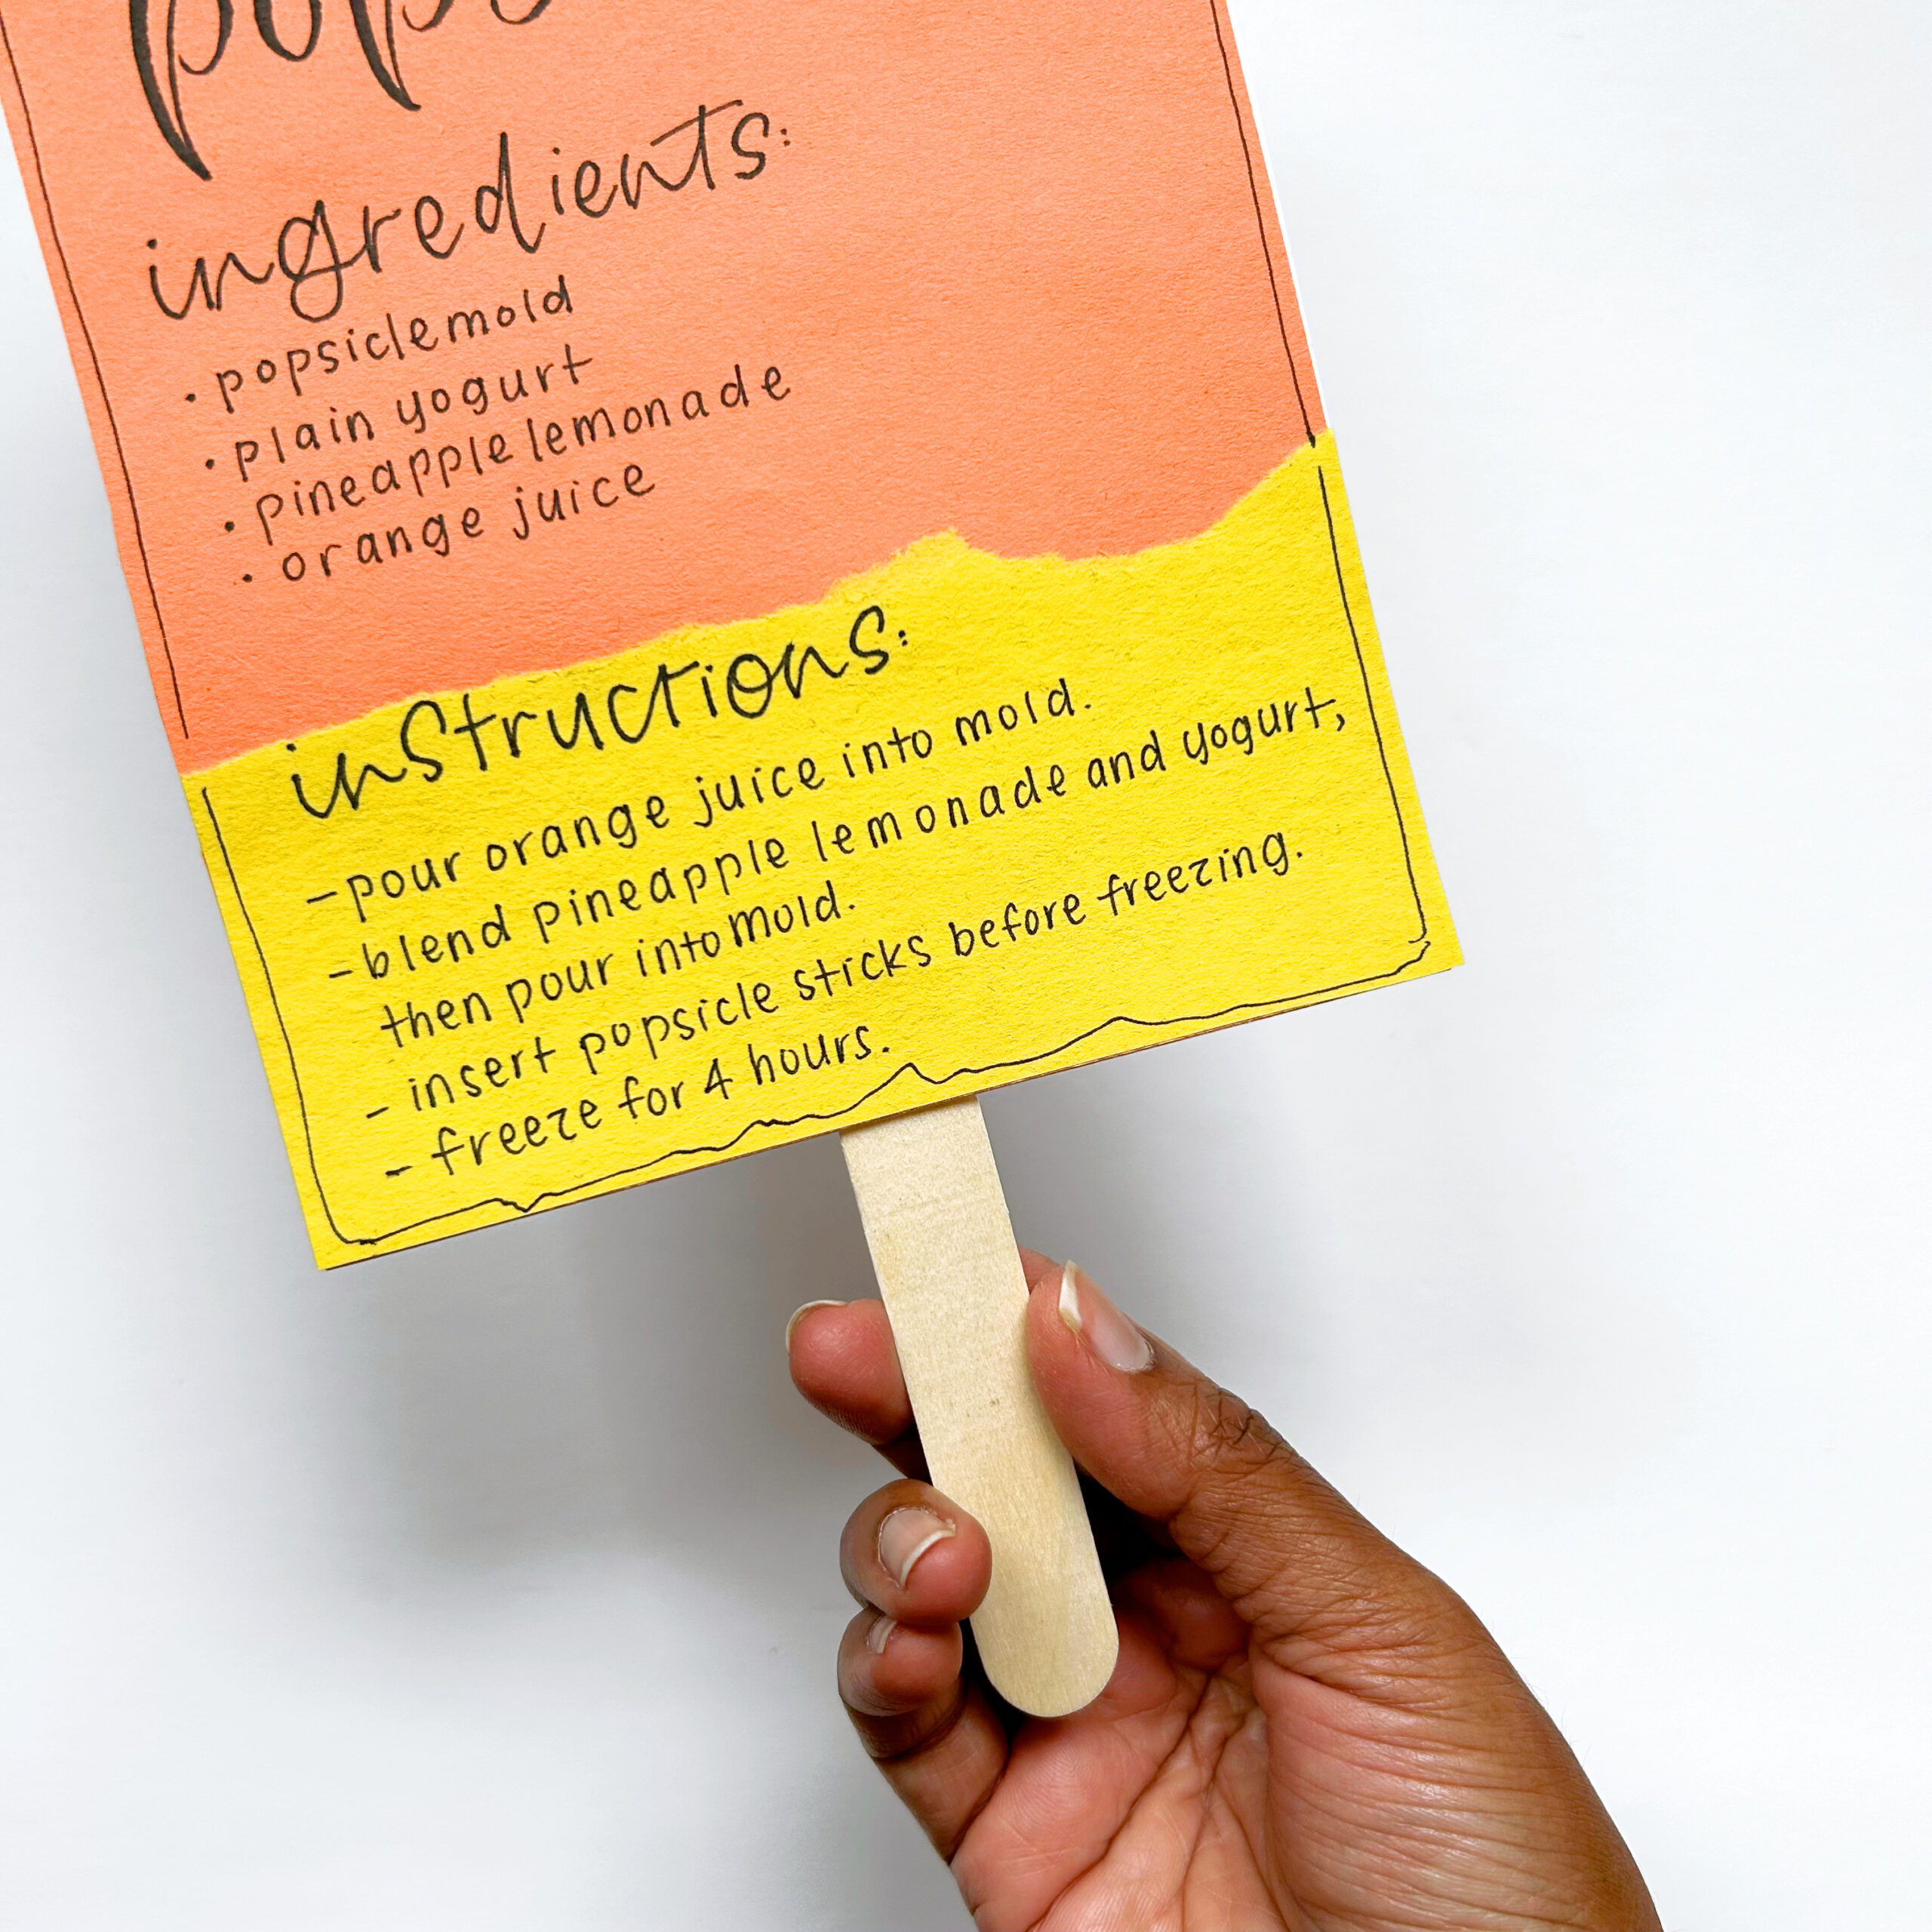 ingredients:
• popsicle mold
• plain yogurt
• pineapple lemonade
• orange juice
instructions:
- pour orange juice into mold.
- blend pineapple lemonade and yogurt,
then pour into mold.
- insert popsicle sticks before freezing.
- freeze for 4 hours.